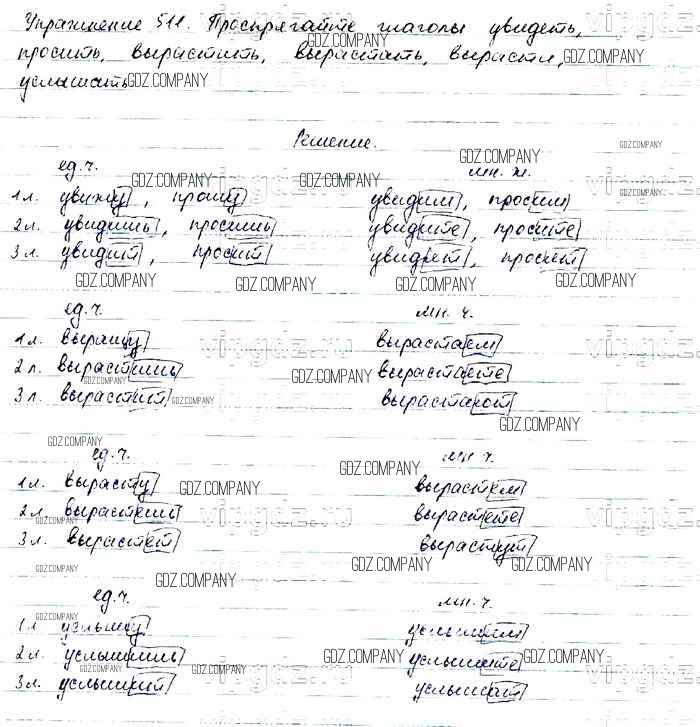 Упражнение 511. Проспрягайте глаголы увидеть,
просить, вырастить, вырастать, вырасти,
услышать
Решение.
ед.ч. мн. ч.
1 л. увижу, прошу увидим, просим
2 л. увидишь, просишь увидите, просите
3 л. увидит, просит увидят, просят
ед.ч. мн. ч.
1 л. выращу вырастаем
2 л. вырастишь вырастаете
3 л. вырастит вырастают
ед.ч. мн. ч.
1 л. вырасту вырастем
2 л. вырастешь вырастете
3 л. вырастет вырастут
ед.ч. мн. ч.
1 л услышу услышим
2 л. услышишь услышите
3 л. услышит услышат
GDZ.COMPANY
vipgdz.ru